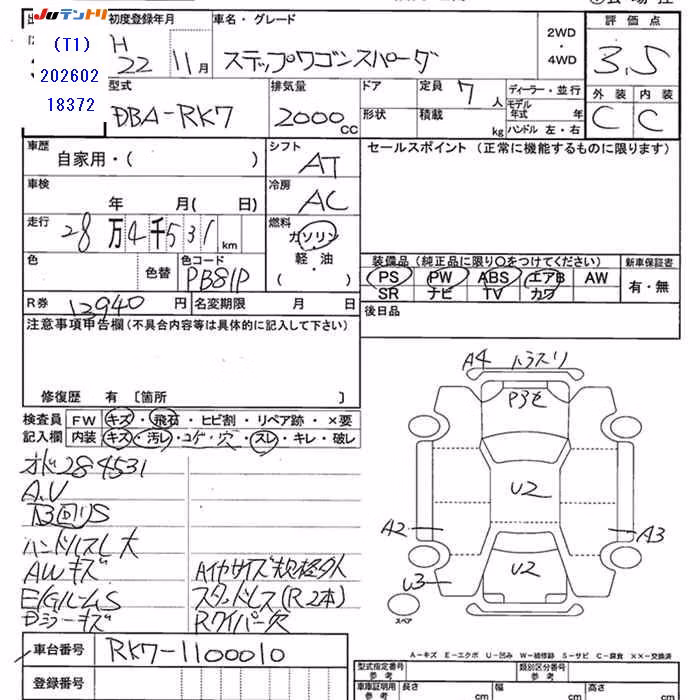 Juテントリ
(T1)
202602
18372
初度登録年月
H 22 11月
車名・グレード
ステップワゴンスパーダ
2WD
・
4WD
評価点
3.5
外装 内装
C C
型式
DBA-RK7
排気量
2000 cc
ドア
形状
定員 7 人
積載 kg
ディーラー・並行
モデル年式 年
ハンドル 左・右
車歴
自家用・( )
シフト
AT
セールスポイント(正常に機能するものに限ります)
車検
年 月( 日)
冷房
AC
走行
28万4千531km
燃料
ガソリン
軽・油
( )
色
色替
色コード
PB81P
装備品(純正品に限り〇をつけてください)
PS PW ABS エアB AW
SR ナビ TV カワ
新車保証書
有・無
R券 12940 円
名変期限 月 日
後日品
注意事項申告欄(不具合内容等は具体的に記入して下さい)
修復歴 有 〔箇所 〕
検査員記入欄
FW キズ・飛石・ヒビ割・リペア跡・×要
内装 キズ・汚レ・コゲ・穴・スレ・キレ・破レ
オド284531
A.V
下回りS
ハンドルスレ大
AWキズ
E/GルームS
Dミラーキズ
タイヤサイズ規格外
スタッドレス(R2本)
Rワイパー欠
A4
A2
U2
U2
A3
U3
スペア
A-キズ E-エクボ U-凹み W-補修跡 S-サビ C-腐食 ××-交換済
車台番号
RK7-1100010
登録番号
型式指定番号
参考
類別区分番号
参考
車庫証明用
参考
長さ cm
幅 cm
高さ cm